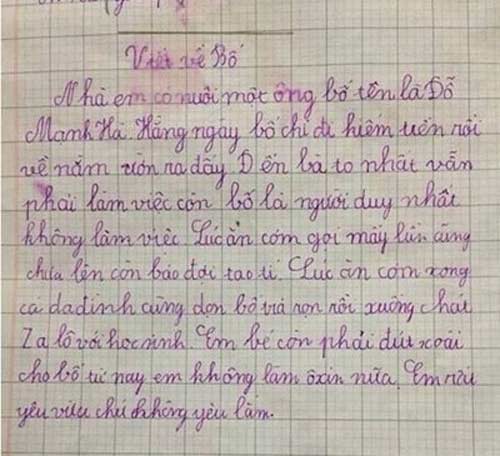 Viết về Bố
Nhà em có nuôi một ông bố tên là Đỗ
Mạnh Hà. Hằng ngày bố chỉ đi kiếm tiền rồi
về nằm ườn ra đấy. Đến bà to nhất vẫn
phải làm việc còn bố là người duy nhất
không làm việc. Lúc ăn cơm gọi mấy lần cũng
chưa lên còn bảo đợi tao tí. Lúc ăn cơm xong
cả da đình cùng dọn bố vừa rọn rồi xuống chat
Za lô với học sinh. Em bé còn phải đút xoài
cho bố từ nay em không làm ôxin nữa. Em rất
yêu vừa chứ không yêu lắm.